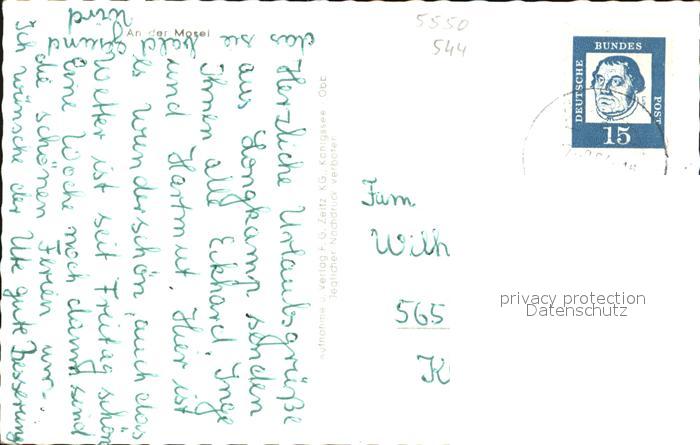 An der Mosel
Herzliche Urlaubsgrüße
aus Longkamp senden
Ihnen alle Eckhard, Inge
und Hartmut. Hier ist
es wunderschön, auch das
Wetter ist seit Freitag schön
Eine Woche noch dann sind
die schönen Ferien um.
Ich wünsche der Ute gute Besserung
das sie
bald
gesund
wird
Aufnahme u. Verlag F. G. Zeitz, KG., Königssee / Obb.
Jeglicher Nachdruck verboten
5550
544
DEUTSCHE
BUNDES
POST
15
Fam
Wilh
565
K
privacy protection
Datenschutz